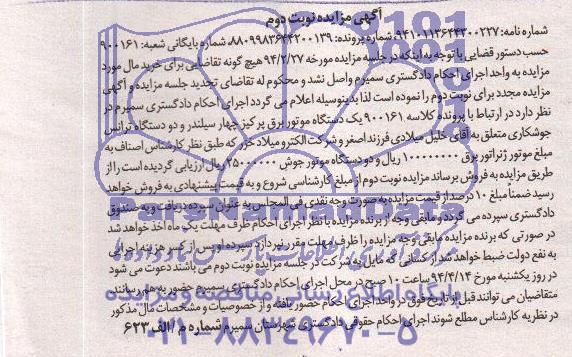 آگهی مزایده نوبت دوم
شماره نامه: ۹۴۱۰۲۱۱۳۶۴۴۳۰۰۲۲۷ شماره پرونده: ۸۸۰۹۹۸۳۶۴۴۲۰۰۱۳۹ شماره بایگانی شعبه: ۹۰۰۱۶۱
حسب دستور قضایی با توجه به اینکه در جلسه مزایده مورخه ۹۴/۲/۲۷ هیچ گونه تقاضایی برای خرید مال مورد
مزایده به واحد اجرای احکام دادگستری سمیرم واصل نشد و محکوم له تقاضای تجدید جلسه مزایده و آگهی
مزایده مجدد برای نوبت دوم را نموده است لذا بدینوسیله اعلام می گردد اجرای احکام دادگستری سمیرم در
نظر دارد در ارتباط با پرونده کلاسه ۹۰۰۱۶۱ یک دستگاه موتور برق پرکیز چهار سیلندر و دو دستگاه ترانس
جوشکاری متعلق به آقای خلیل میلادی فرزند اصغر و شرکت الکترو میلاد خزر که طبق نظر کارشناس اصناف به
مبلغ موتور ژنراتور برق ۱۰۰۰۰۰۰۰۰ ریال و دو دستگاه موتور جوش ۲۵۰۰۰۰۰۰ ریال ارزیابی گردیده است را از
طریق مزایده به فروش برساند مزایده نوبت دوم از مبلغ کارشناسی شروع و به قیمت پیشنهادی به فروش خواهد
رسید ضمناً مبلغ ۱۰ درصد از قیمت مزایده به صورت وجه نقدی فی المجلس به عنوان سپرده دریافت و به صندوق
دادگستری سپرده می گردد و مابقی وجه از برنده مزایده با نظر اجرای احکام ظرف مهلت یک ماه اخذ خواهد شد
در صورتی که برنده مزایده مابقی وجه مزایده را ظرف مهلت مقرر نپردازد سپرده او پس از کسر هزینه اجرایی
به نفع دولت ضبط خواهد شد از کسانی که مایل به شرکت در جلسه مزایده نوبت دوم می باشند دعوت می شود
در روز یکشنبه مورخ ۹۴/۴/۱۴ ساعت ۱۰ صبح در محل اجرای احکام دادگستری سمیرم حضور به هم رسانند
متقاضیان می توانند قبل از تاریخ فوق در واحد اجرای احکام حضور یافته و از خصوصیات و مشخصات مال مذکور
در نظریه کارشناس مطلع شوند اجرای احکام حقوقی دادگستری شهرستان سمیرم شماره م/الف ۶۲۳
ParsNamadData
پایگاه اطلاع رسانی مناقصه و مزایده
۰۲۱-۸۸۳۴۹۶۷۰-۵